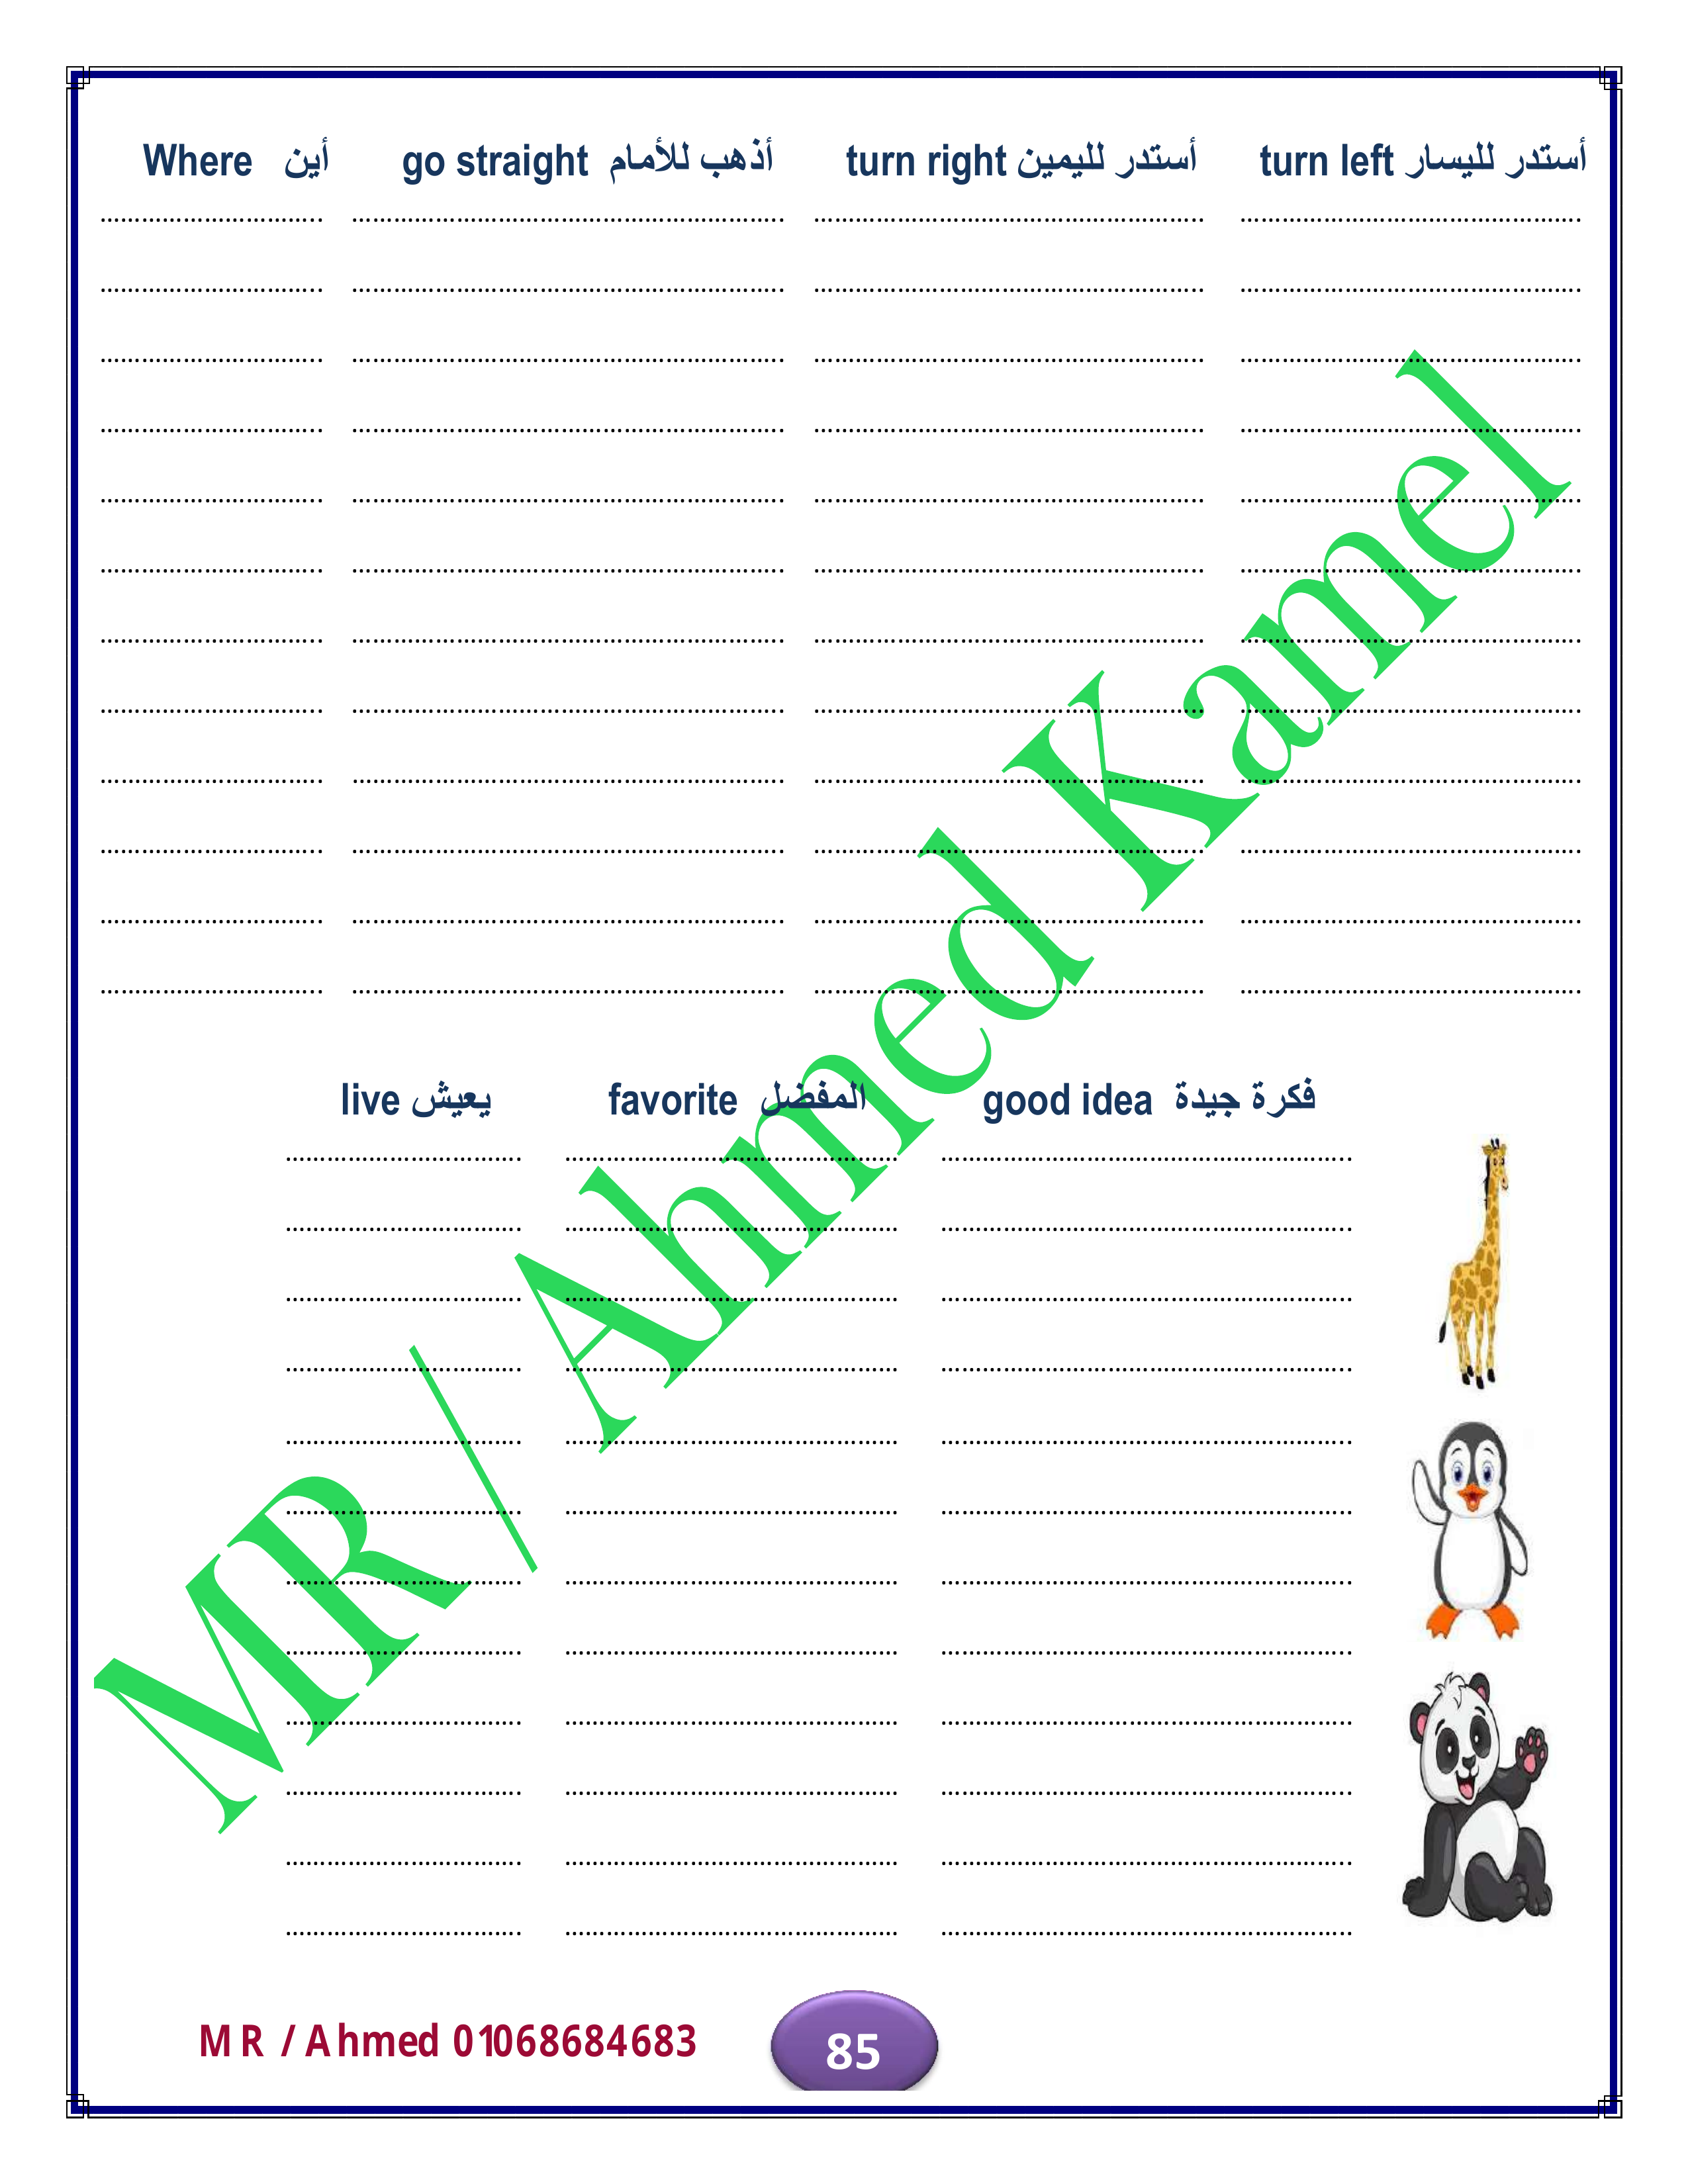 Where أين go straight أذهب للأمام turn right أستدر لليمين turn left أستدر لليسار
live يعيش favorite المفضل good idea فكرة جيدة
MR / Ahmed Kamel
MR / Ahmed 01068684683
85